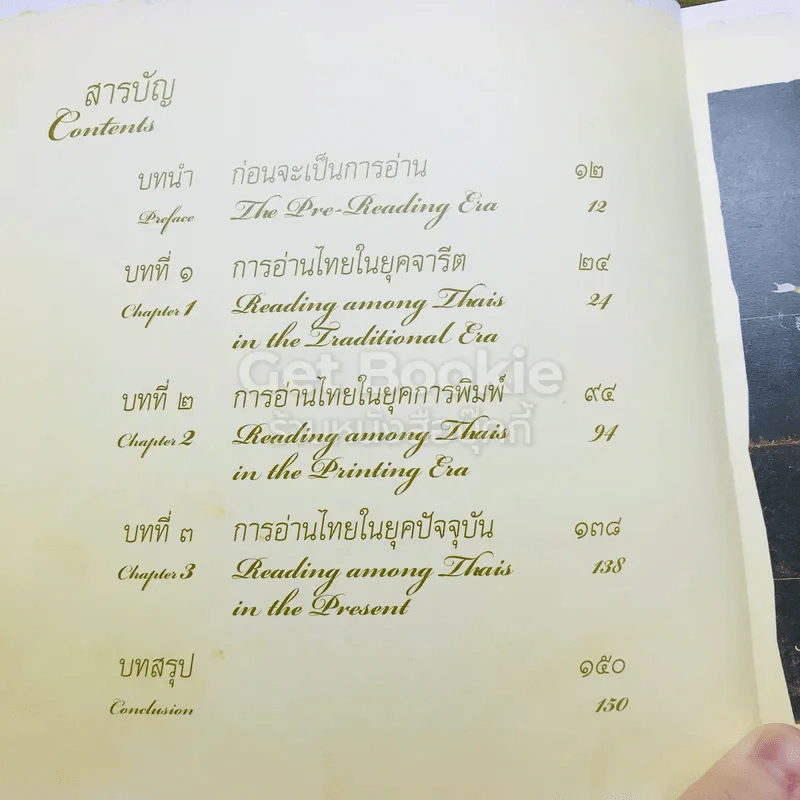 สารบัญ
Contents
บทนำ ก่อนจะเป็นการอ่าน ๑๒
Preface The Pre-Reading Era 12
บทที่ ๑ การอ่านไทยในยุคจารีต ๒๔
Chapter 1 Reading among Thais 24
in the Traditional Era
Get Bookie
บทที่ ๒ การอ่านไทยในยุคการพิมพ์ ๙๔
ร้านหนังสือบุ๊คกี้
Chapter 2 Reading among Thais 94
in the Printing Era
บทที่ ๓ การอ่านไทยในยุคปัจจุบัน ๑๓๘
Chapter 3 Reading among Thais 138
in the Present
บทสรุป ๑๕๐
Conclusion 150